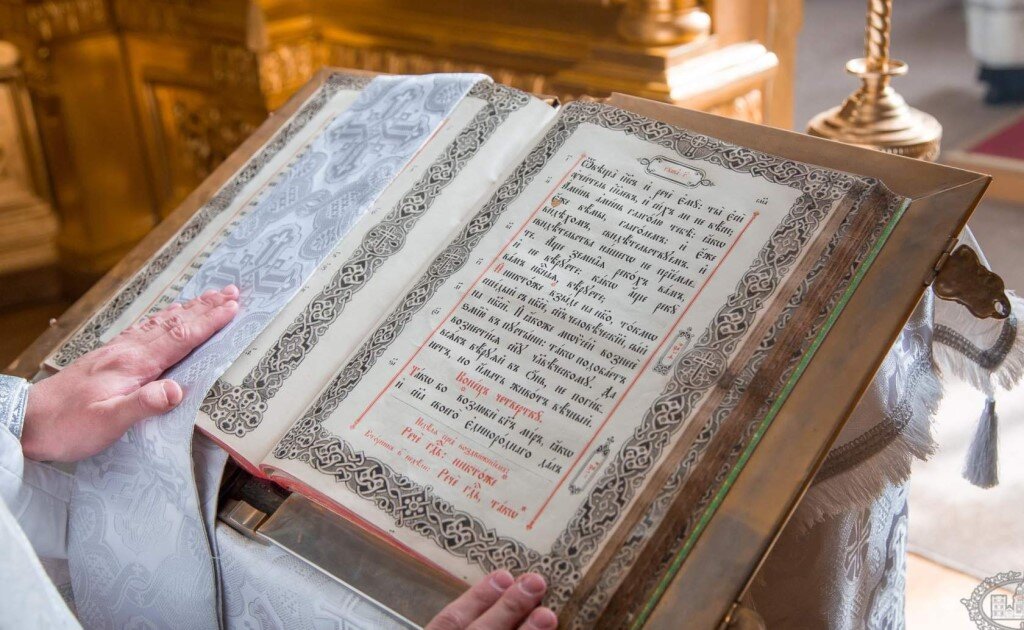 Глава̀ г҃.
Ѿвѣща̀ і҆и҃съ и҆ речѐ є҆мꙋ̀: ты̀ є҆сѝ
ᲂу҆чи́тель і҆и҃левъ, и҆ си́хъ ли не вѣ́си;
А҆ми́нь а҆ми́нь глаго́лю тебѣ̀: ꙗ҆́кѡ
є҆́же вѣ́мы, глаго́лемъ: и҆ є҆́же
ви́дѣхомъ, свидѣ́тельствꙋемъ, и҆
свидѣ́тельства на́шегѡ не прїе́млете.
А҆́ще земна̑ѧ реко́хъ ва́мъ,
и҆ не вѣ́рꙋете: ка́кѡ, а҆́ще рекꙋ̀
ва́мъ нбⷭ҇наѧ, ᲂу҆вѣ́рꙋете;
И҆ никто́же взы́де на нб҃о, то́кмѡ
сше́дый съ нб҃сѐ, сн҃ъ чл҃вѣ́ческїй, сы́й
на нб҃сѝ. И҆ ꙗ҆́коже мѡѷсе́й вознесѐ
ѕмїю̀ въ пꙋсты́ни, та́кѡ подоба́етъ
вознести́сѧ сн҃ꙋ чл҃вѣ́ческомꙋ, да
всѧ́къ вѣ́рꙋѧй въ ѻ҆́нь, не поги́б-
нетъ, но и҆́мать живо́тъ вѣ́чный.
Коне́цъ четверткꙋ̀.
Та́кѡ бо возлюбѝ бг҃ъ мі́ръ, ꙗ҆́кѡ
сн҃а своего̀ є҆диноро́днаго да́лъ
Недѣ́лѧ пре́дъ воздви́женїемъ:
Речѐ гдⷭ҇ь: никто́же
Речѐ гдⷭ҇ь, та́кѡ